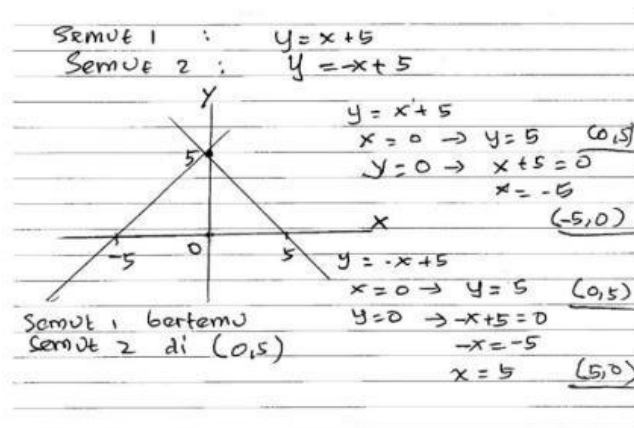 Semut 1 : y = x + 5
Semut 2 : y = -x + 5
y
5
-5
0
5
x
y = x + 5
x = 0 → y = 5 (0,5)
y = 0 → x + 5 = 0
x = -5
(-5,0)
y = -x + 5
x = 0 → y = 5 (0,5)
y = 0 → -x + 5 = 0
-x = -5
x = 5 (5,0)
Semut 1 bertemu
Semut 2 di (0,5)